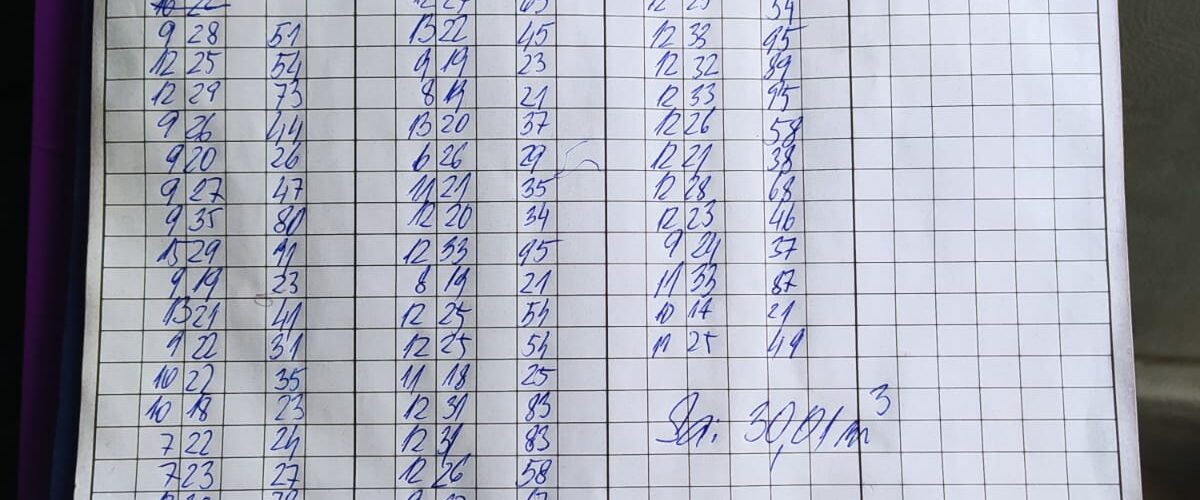 9 28 51 13 22 45 12 33 95
12 25 54 9 19 23 12 32 89
12 29 73 8 19 21 12 33 95
9 26 44 13 20 37 12 26 58
9 20 26 6 26 29 12 21 38
9 27 47 11 21 35 12 28 68
9 35 80 12 20 34 12 23 46
15 29 91 12 33 95 9 24 37
9 19 23 8 19 21 11 33 87
13 21 41 12 25 54 10 17 21
9 22 31 12 25 54 11 25 49
10 22 35 11 18 25
10 18 23 12 31 83
Sa: 30,01 m³
7 22 24 12 31 83
7 23 27 12 26 58